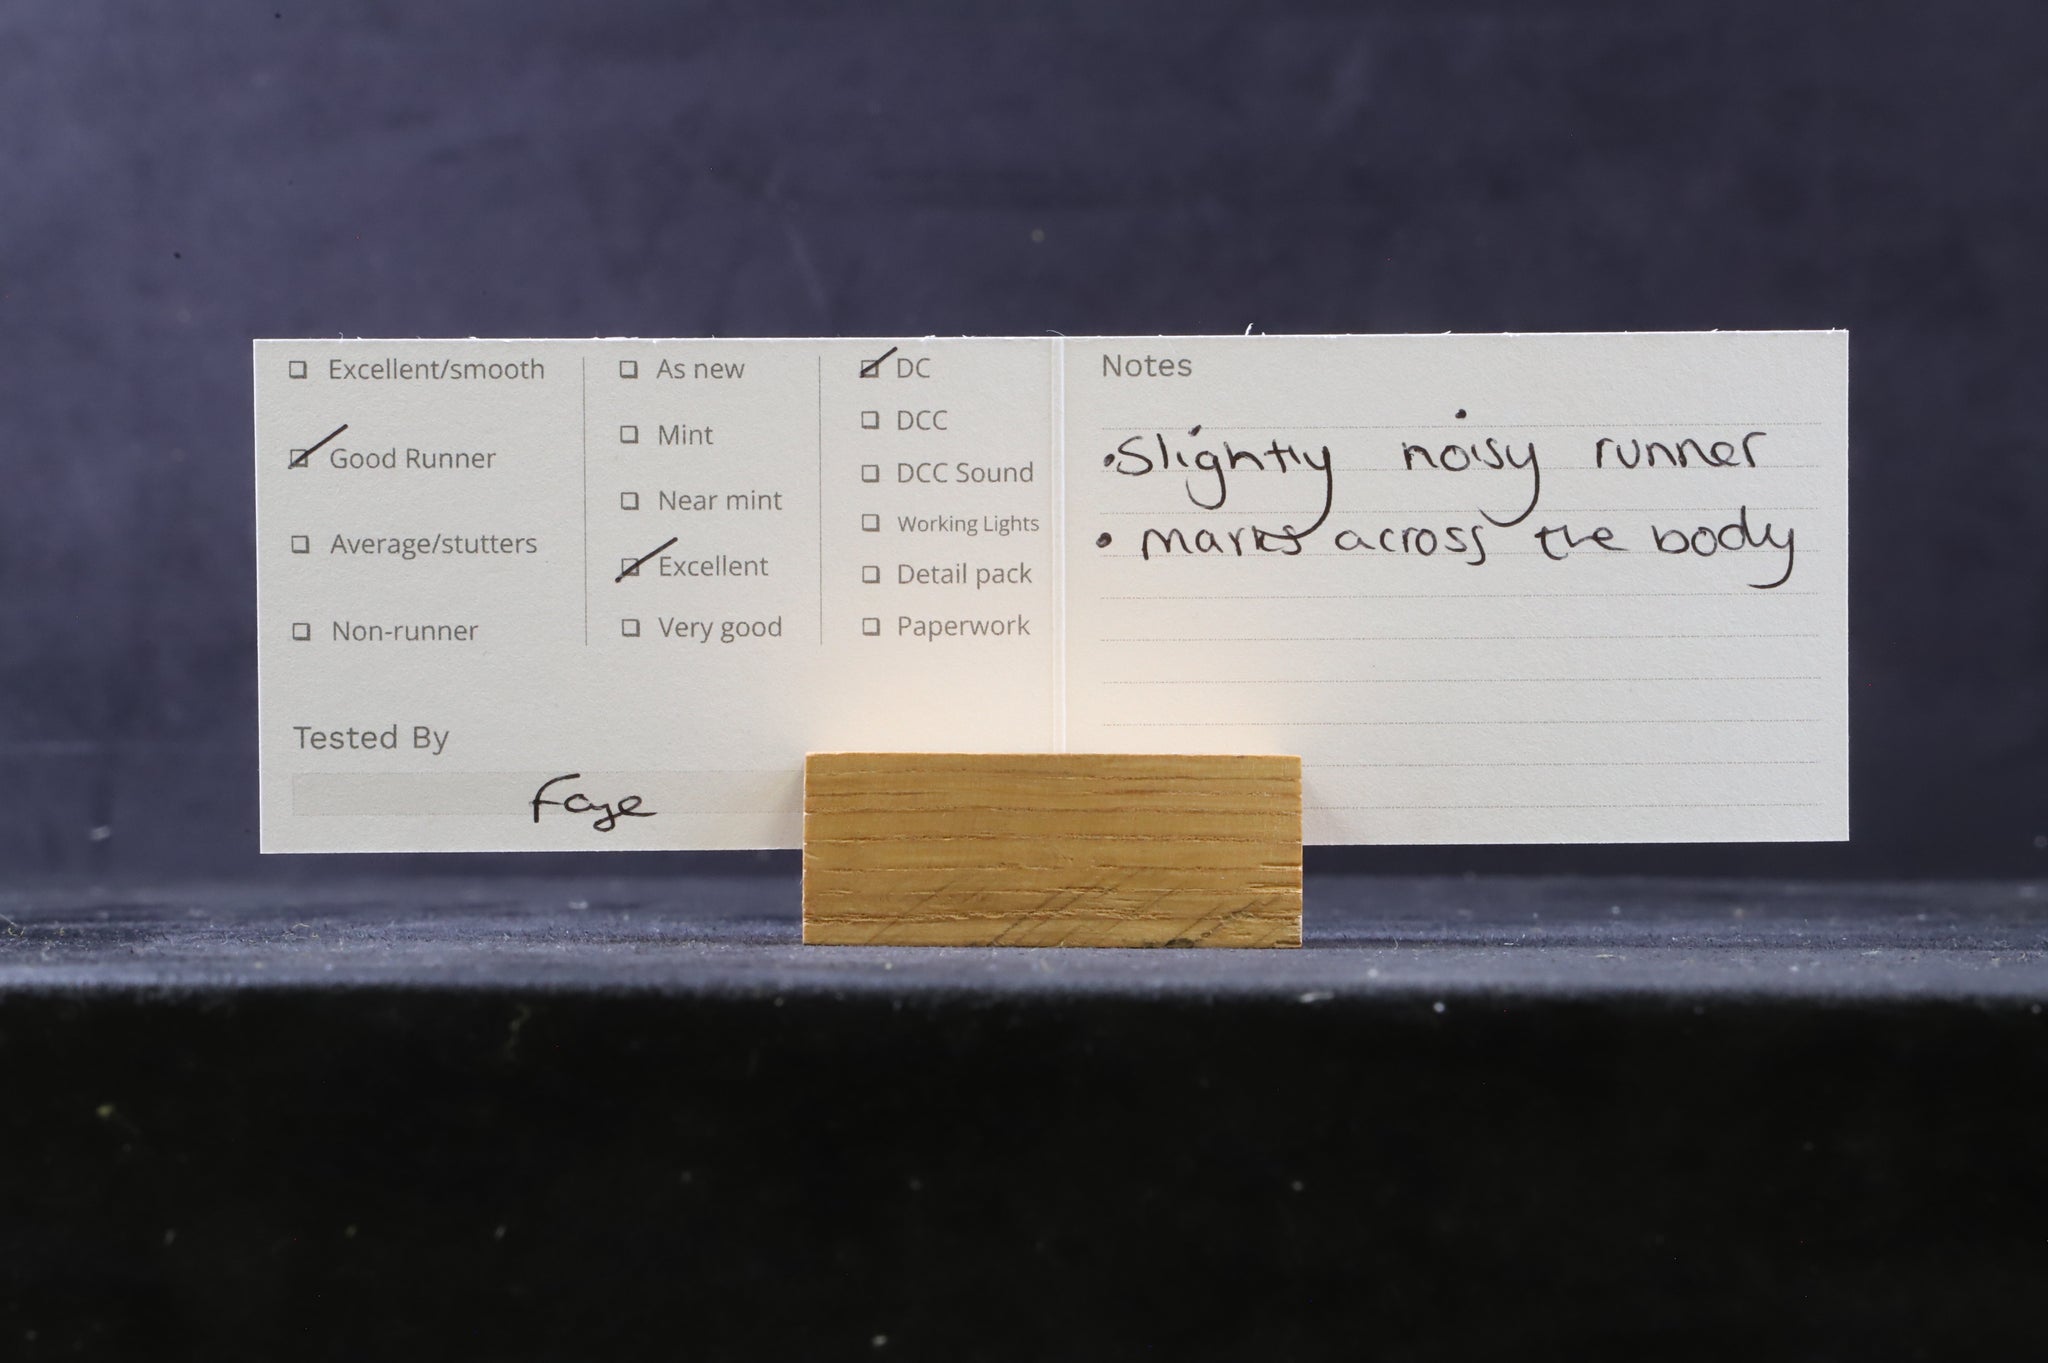 ☐ Excellent/smooth
☑ Good Runner
☐ Average/stutters
☐ Non-runner
☐ As new
☐ Mint
☐ Near mint
☑ Excellent
☐ Very good
☑ DC
☐ DCC
☐ DCC Sound
☐ Working Lights
☐ Detail pack
☐ Paperwork
Tested By
Faye
Notes
• Slightly noisy runner
• marks across the body